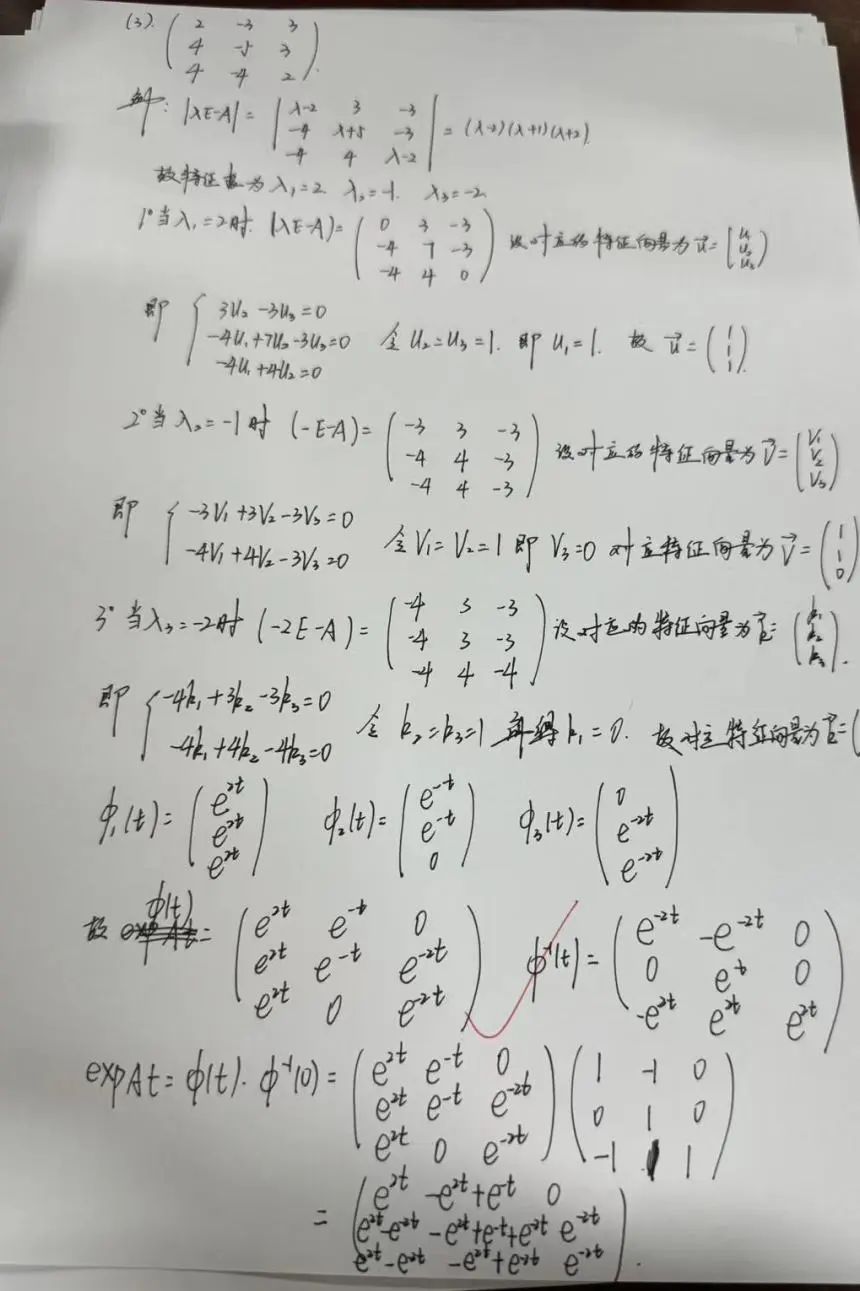 (3). ( 2 -3 3
4 -5 3
4 -4 2 ).
解: |λE-A| = | λ-2 3 -3
-4 λ+5 -3
-4 4 λ-2 | = (λ-2)(λ+1)(λ+2).
故特征值为 λ₁=2 λ₂=-1. λ₃=-2
1° 当λ₁=2时. (λE-A)= ( 0 3 -3
-4 7 -3
-4 4 0 ) 设对应的特征向量为 u⃗= ( u₁
u₂
u₃ )
即 { 3u₂-3u₃=0
-4u₁+7u₂-3u₃=0 令 u₂=u₃=1. 即 u₁=1. 故 u⃗= ( 1
1
1 ).
-4u₁+4u₂=0
2° 当λ₂=-1时 (-E-A)= ( -3 3 -3
-4 4 -3
-4 4 -3 ) 设对应的特征向量为 v⃗= ( v₁
v₂
v₃ )
即 { -3v₁+3v₂-3v₃=0
-4v₁+4v₂-3v₃=0 令 v₁=v₂=1 即 v₃=0 对应特征向量为 v⃗= ( 1
1
0 )
3° 当λ₃=-2时 (-2E-A)= ( -4 3 -3
-4 3 -3
-4 4 -4 ) 设对应的特征向量为 k⃗= ( k₁
k₂
k₃ ).
即 { -4k₁+3k₂-3k₃=0
-4k₁+4k₂-4k₃=0 令 k₂=k₃=1 解得 k₁=0. 故对应特征向量为 k⃗= (
φ₁(t)= ( e²ᵗ
e²ᵗ
e²ᵗ ) φ₂(t)= ( e⁻ᵗ
e⁻ᵗ
0 ) φ₃(t)= ( 0
e⁻²ᵗ
e⁻²ᵗ )
故 φ(t) = ( e²ᵗ e⁻ᵗ 0
e²ᵗ e⁻ᵗ e⁻²ᵗ
e²ᵗ 0 e⁻²ᵗ ) φ⁻¹(t)= ( e⁻²ᵗ -e⁻²ᵗ 0
0 eᵗ 0
-e²ᵗ e²ᵗ e²ᵗ )
expAt = φ(t)·φ⁻¹(0) = ( e²ᵗ e⁻ᵗ 0
e²ᵗ e⁻ᵗ e⁻²ᵗ
e²ᵗ 0 e⁻²ᵗ ) ( 1 -1 0
0 1 0
-1 1 1 )
= ( e²ᵗ -e²ᵗ+e⁻ᵗ 0
e²ᵗ-e⁻²ᵗ -e²ᵗ+e⁻ᵗ+e⁻²ᵗ e⁻²ᵗ
e²ᵗ-e⁻²ᵗ -e²ᵗ+e⁻²ᵗ e⁻²ᵗ ).